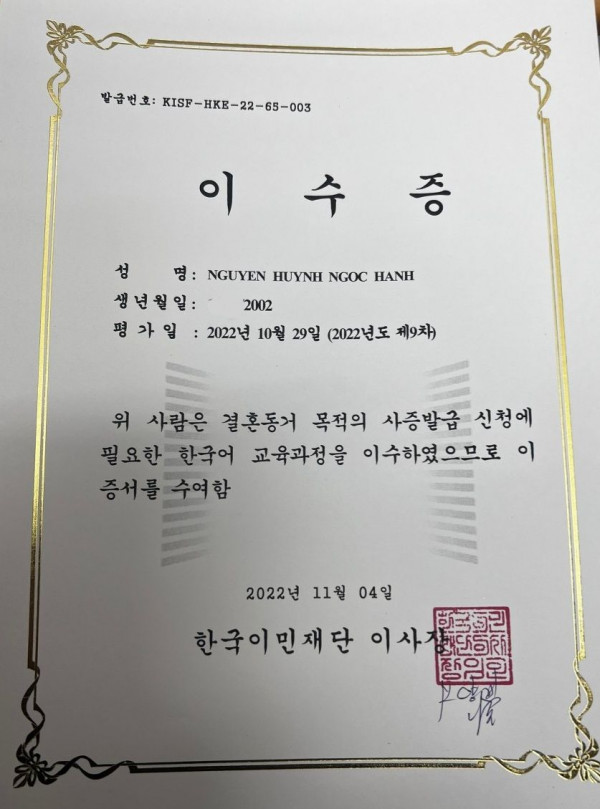 발급번호: KISF-HKE-22-65-003
이 수 증
성 명: NGUYEN HUYNH NGOC HANH
생년월일: 2002
평가일 : 2022년 10월 29일 (2022년도 제9차)
위 사람은 결혼동거 목적의 사증발급 신청에
필요한 한국어 교육과정을 이수하였으므로 이
증서를 수여함
2022년 11월 04일
한국이민재단 이사장